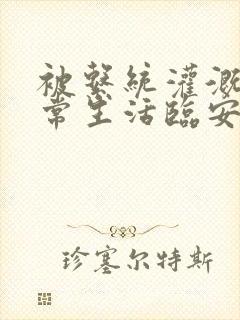 被繫統灌溉
常生活臨安
珍塞尔特斯